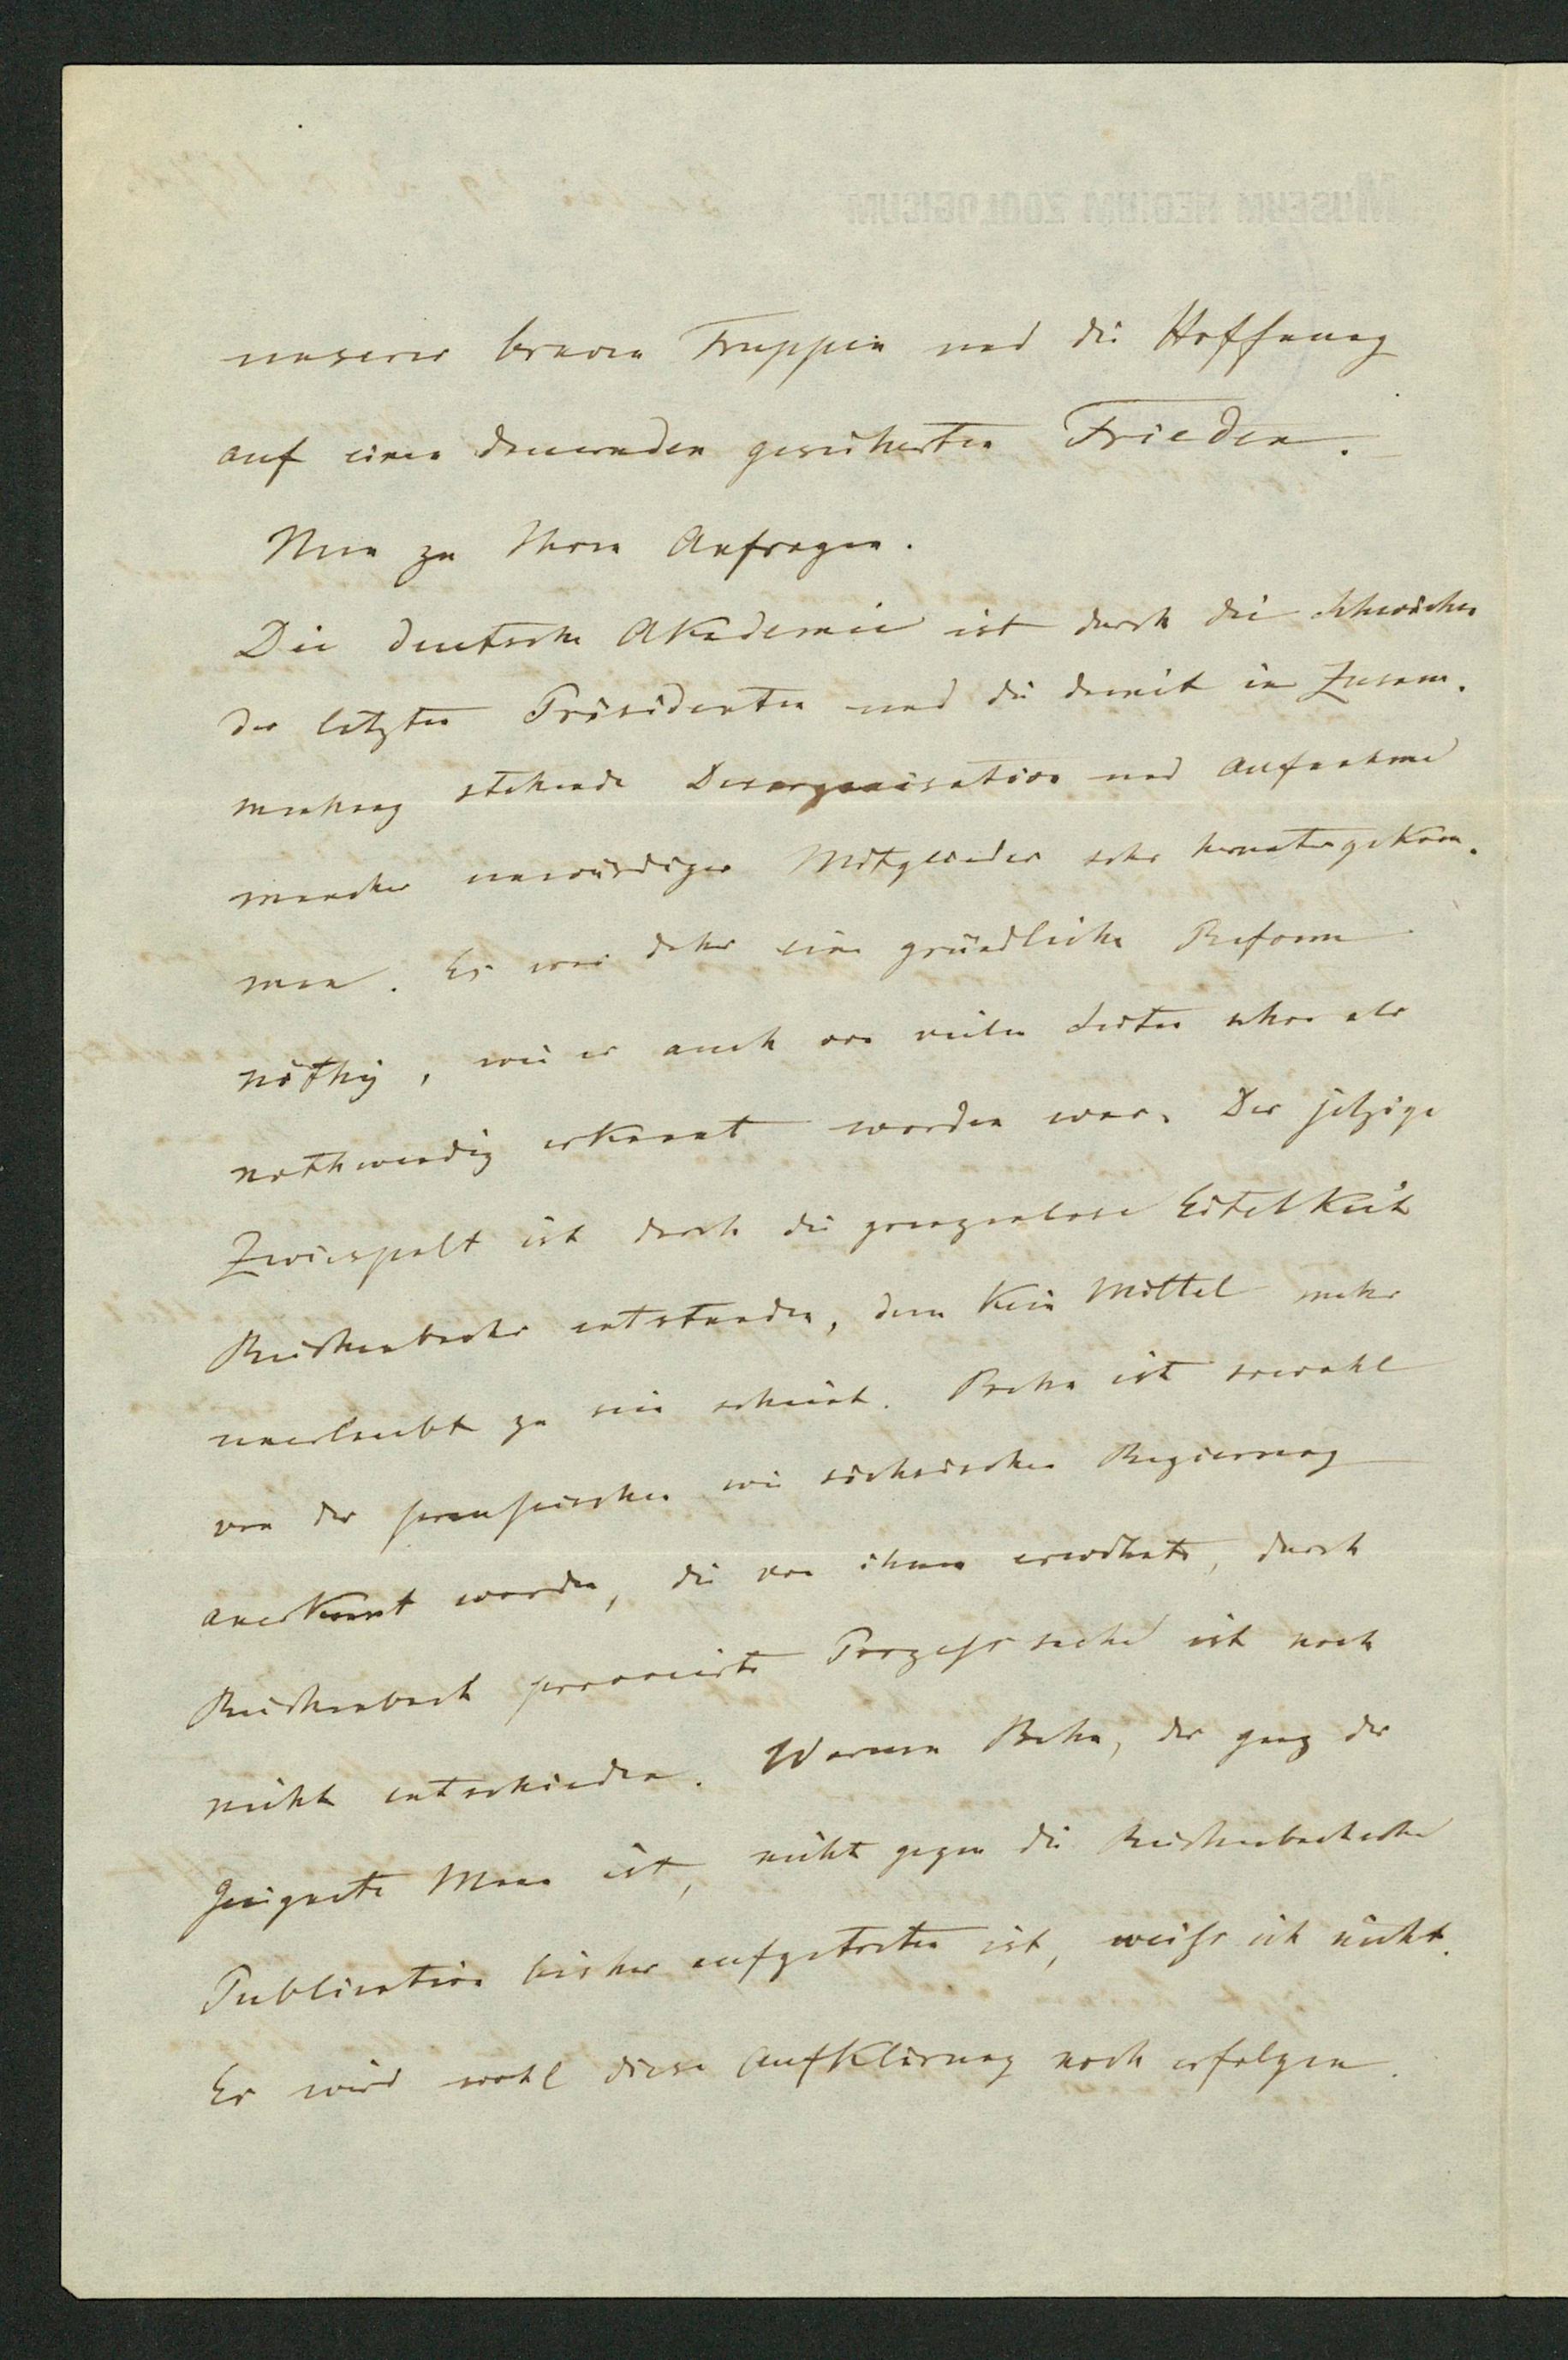 MUSEUM REGIUM ZOOLOGICUM
unserer braven Truppen und die Hoffnung
auf einen dauernden gesicherten Frieden.
Nun zu Ihren Anfragen.
Die deutsche Akademie ist durch die Schwäche
der letzten Präsidenten und die damit in Zusam-
menhang stehende Desorganisation und Aufnahme
mancher unwürdiger Mitglieder sehr heruntergekom-
men. Es war daher eine gründliche Reform
nöthig, wie es auch von vielen Seiten schon als
nothwendig erkannt worden war. Der jetzige
Zwiespalt ist durch die grenzenlose Eitelkeit
Reichenbachs entstanden, dem kein Mittel mehr
unerlaubt zu sein scheint. Behn ist sowohl
von der preußischen wie sächsischen Regierung
anerkannt worden, die von ihnen erwähnte, durch
Reichenbach provocirte Prozeßsache ist noch
nicht entschieden. Warum Behn, der ganz der
geeignete Mann ist, nicht gegen die Reichenbachsche
Publication bisher aufgetreten ist, weiß ich nicht.
Es wird wohl diese Aufklärung noch erfolgen.